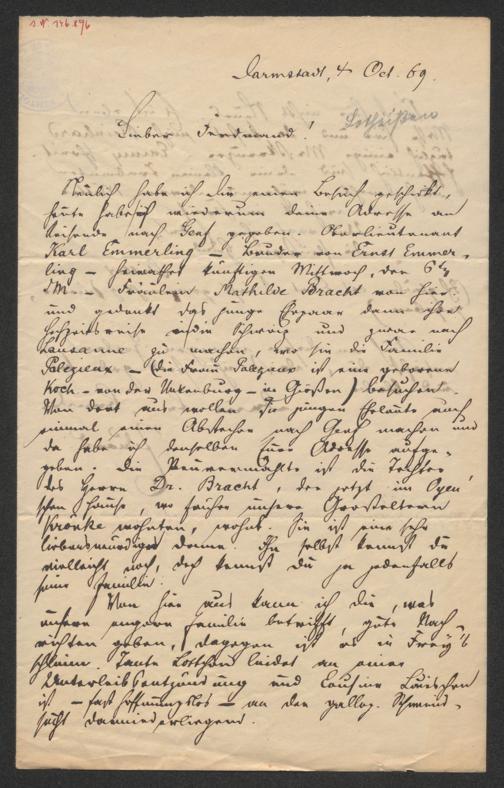 Darmstadt, 4 Oct. 69.
Lieber Ferdinand!
Neulich habe ich dir einen Besuch geschickt,
heute habe ich wiederum deine Adresse an
Reisende nach Genf gegeben. Oberlieutenant
Karl Emmerling – Bruder von Ernst Emmer-
ling – heirathet künftigen Mittwoch, den 6ten
d.M. – Fräulein Mathilde Bracht von hier
und gedenkt das junge Ehepaar dann ihre
Hochzeitsreise in die Schweiz und zwar nach
Lausanne zu machen, wo sie die Familie
Palezieux – (die Frau Palezieux ist eine geborene
Koch – von der – in Gießen) besuchen.
Von dort aus wollen die jungen Eheleute auch
einmal einen Abstecher nach Genf machen und
da habe ich denselben Eure Adresse aufge-
geben. Die Neuvermählte ist die Tochter
des Herrn Dr. Bracht, der jetzt im
schen Hause, wo früher unsere Großeltern
Kroenke wohnten, wohnt. Sie ist eine sehr
liebenswürdige Dame. Ihn selbst kennst du
vielleicht noch, doch kennst du ja jedenfalls
seine Familie.
Von hier aus kann ich dir, was
unsere engere Familie betrifft, gute Nach-
richten geben, dagegen ist es in Frey's
schlimm. Tante Lottchen leidet an einer
Unterleibsentzündung und Cousine Luischen
ist – fast hoffnungslos – an der gallop. Schwind-
sucht darniederliegend.